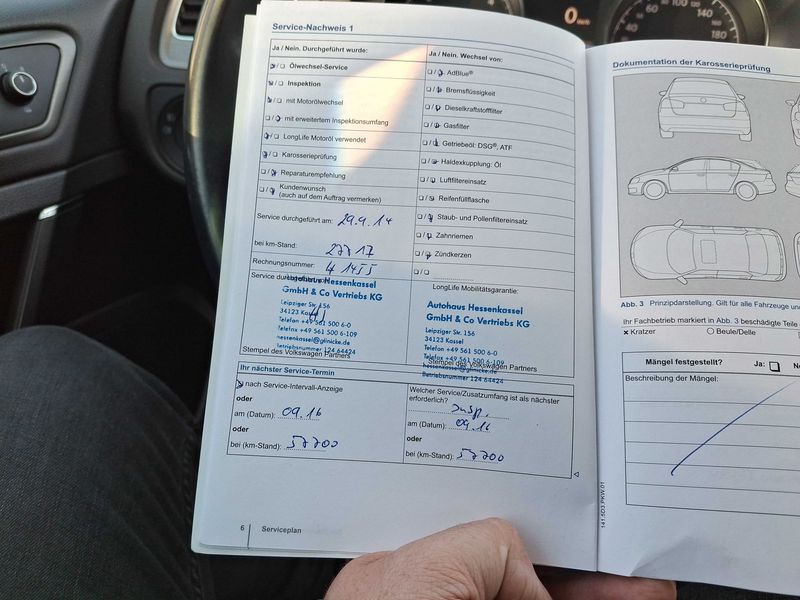 Service-Nachweis 1
Ja / Nein. Durchgeführt wurde:
Ölwechsel-Service
Inspektion
mit Motorölwechsel
mit erweitertem Inspektionsumfang
LongLife Motoröl verwendet
Karosserieprüfung
Reparaturempfehlung
Kundenwunsch
(auch auf dem Auftrag vermerken)
Service durchgeführt am: 29.9.14
bei km-Stand: 27717
Rechnungsnummer: 41455
Service durchgeführt
Autohaus Hessenkassel
GmbH & Co Vertriebs KG
Leipziger Str. 156
34123 Kassel
Telefon +49 561 500 6-0
Telefax +49 561 500 6-109
hessenkassel@glinicke.de
Betriebsnummer 124 64424
Stempel des Volkswagen Partners
Ja / Nein. Wechsel von:
AdBlue®
Bremsflüssigkeit
Dieselkraftstofffilter
Gasfilter
Getriebeöl: DSG®, ATF
Haldexkupplung: Öl
Luftfiltereinsatz
Reifenfüllflasche
Staub- und Pollenfiltereinsatz
Zahnriemen
Zündkerzen
LongLife Mobilitätsgarantie:
Autohaus Hessenkassel
GmbH & Co Vertriebs KG
Leipziger Str. 156
34123 Kassel
Telefon +49 561 500 6-0
Telefax +49 561 500 6-109
hessenkassel@glinicke.de
Betriebsnummer 124 64424
Stempel des Volkswagen Partners
Ihr nächster Service-Termin
nach Service-Intervall-Anzeige
oder
am (Datum): 09.16
oder
bei (km-Stand): 57700
Welcher Service/Zusatzumfang ist als nächster
erforderlich?
Insp.
am (Datum): 09.16
oder
bei (km-Stand): 57700
6 Serviceplan
141.5D3.PKW.01
Dokumentation der Karosserieprüfung
Abb. 3 Prinzipdarstellung. Gilt für alle Fahrzeuge
Ihr Fachbetrieb markiert in Abb. 3 beschädigte Teile
x Kratzer
Beule/Delle
Mängel festgestellt? Ja:
Beschreibung der Mängel:
0 km/h
40
60
80
100
120
140
160
180